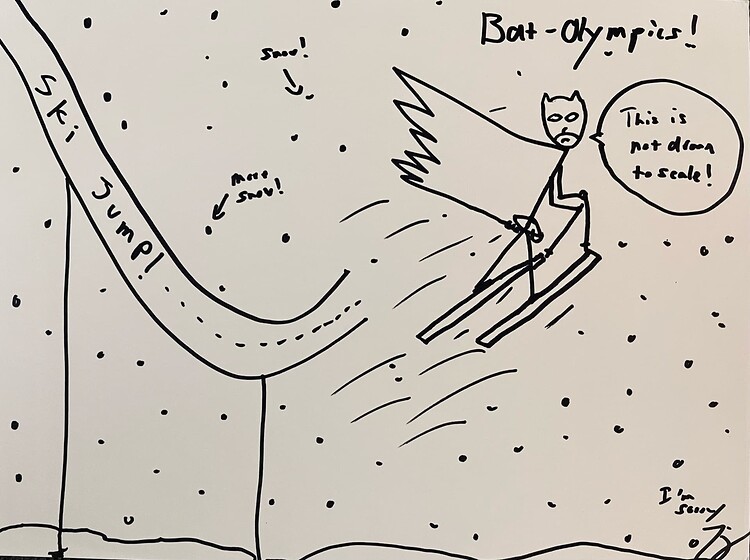 Bat-Olympics!
snow!
Ski Jump!
This is
not drawn
to scale!
more
snow!
I'm
sorry